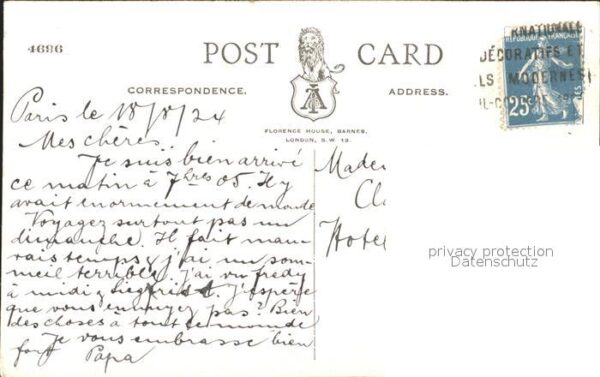 4696
POST CARD
CORRESPONDENCE.
ADDRESS.
FLORENCE HOUSE, BARNES,
LONDON, S.W. 13.
RNATIONALE
DÉCORATIFS ET
LS MODERNES
RÉPUBLIQUE FRANÇAISE
25c
Paris le 18/8/24
Mes chères
Je suis bien arrivé
ce matin à 7 hres 05. Il y
avait enormement de monde
Voyagez surtout pas un
dimanche. Il fait mau-
vais temps & j'ai un som-
meil terrible. J'ai vu fredy
à midi, Siegfried J'espère
que vous ennuyez pas? Bien
des choses à tout le monde
Je vous embrasse bien
fort Papa
Madem
Cl
Hotel
privacy protection
Datenschutz